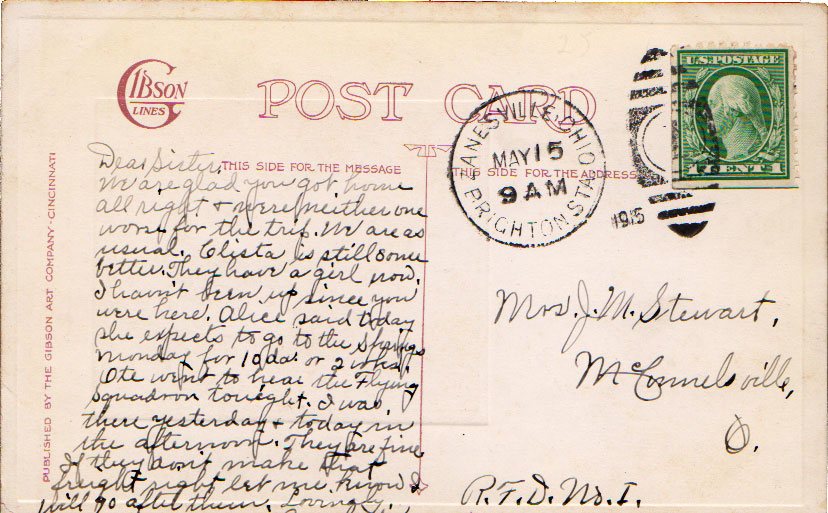 GIBSON
LINES
POST CARD
THIS SIDE FOR THE MESSAGE
THIS SIDE FOR THE ADDRESS
PUBLISHED BY THE GIBSON ART COMPANY - CINCINNATI
ZANESVILLE, OHIO
MAY 15
9 AM
BRIGHTON STA.
1915
U.S. POSTAGE
1 CENTS 1
Dear Sister,
We are glad you got home
all right & were neither one
worse for the trip. We are as
usual. Clista is still some
better. They have a girl now.
I havn't been up since you
were here. Alice said today
she expects to go to the Springs
Monday for 10 da. or 2 wks.
Ote went to hear the Flying
Squadron tonight. I was
there yesterday & today in
the afternoon. They are fine
If they don't make that
freight right let me know I
will go after them. Lovingly,
Mrs. J. M. Stewart,
McConnelsville,
O.
R.F.D. No. 1.